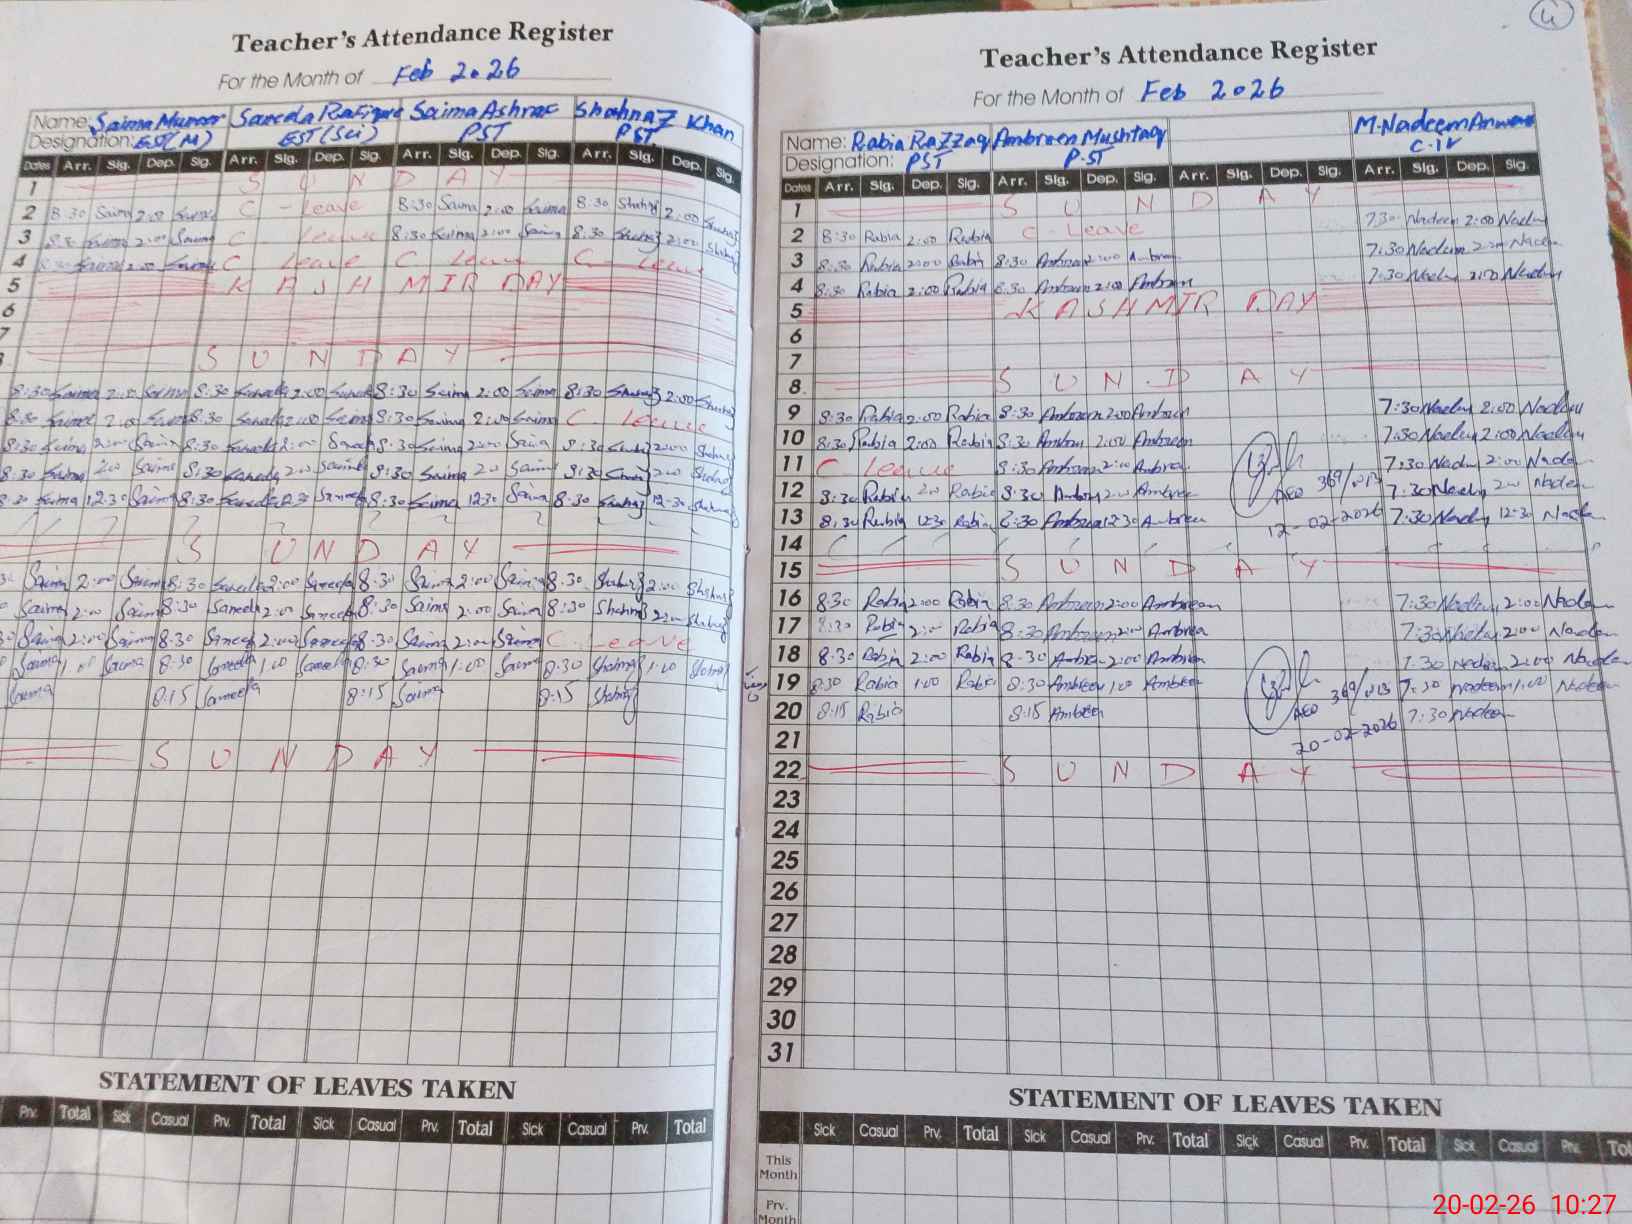 Teacher's Attendance Register
For the Month of Feb 2026
Name: Saima Munar Saneela Rafique Saima Ashraf Shahnaz Khan
Designation: EST(M) EST(Sci) PST PST
Dates Arr. Sig. Dep. Sig. Arr. Sig. Dep. Sig. Arr. Sig. Dep. Sig. Arr. Sig. Dep. Sig.
1 SUNDAY
2 8:30 Saima 2:00 Saima C-Leave 8:30 Saima 2:00 Saima 8:30 Shahnaz 2:00 Shahnaz
3 8:30 Saima 2:00 Saima C Leave 8:30 Saima 2:00 Saima 8:30 Shahnaz 2:00 Shahnaz
4 8:30 Saima 2:00 Saima C Leave C Leave C-Leave
5 KASHMIR DAY
6
7
SUNDAY
8:30 Saima 2:00 Saima 8:30 Saneela 2:00 Saneela 8:30 Saima 2:00 Saima 8:30 Shahnaz 2:00 Shahnaz
8:30 Saima 2:00 Saima 8:30 Saneela 2:00 Saneela 8:30 Saima 2:00 Saima C Leave
8:30 Saima 2:00 Saima 8:30 Saneela 2:00 Saneela 8:30 Saima 2:00 Saima 8:30 Shahnaz 2:00 Shahnaz
8:30 Saima 2:00 Saima 8:30 Saneela 2:00 Saneela 8:30 Saima 2:00 Saima 8:30 Shahnaz 2:00 Shahnaz
8:30 Saima 12:30 Saima 8:30 Saneela 12:30 Saneela 8:30 Saima 12:30 Saima 8:30 Shahnaz 12:30 Shahnaz
SUNDAY
Saima 2:00 Saima 8:30 Saneela 2:00 Saneela 8:30 Saima 2:00 Saima 8:30 Shahnaz 2:00 Shahnaz
Saima 2:00 Saima 8:30 Saneela 2:00 Saneela 8:30 Saima 2:00 Saima 8:30 Shahnaz 2:00 Shahnaz
Saima 2:00 Saima 8:30 Saneela 2:00 Saneela 8:30 Saima 2:00 Saima C-Leave
Saima 1:00 Saima 8:30 Saneela 1:00 Saneela 8:30 Saima 1:00 Saima 8:30 Shahnaz 1:00 Shahnaz
Saima 8:15 Saneela 8:15 Saima 8:15 Shahnaz
SUNDAY
STATEMENT OF LEAVES TAKEN
Prv. Total Sick Casual Prv. Total Sick Casual Prv. Total Sick Casual Prv. Total
Teacher's Attendance Register
For the Month of Feb 2026
Name: Rabia Razzaq Ambreen Mushtaq M.Nadeem Anwar
Designation: PST P.ST C-IV
Dates Arr. Sig. Dep. Sig. Arr. Sig. Dep. Sig. Arr. Sig. Dep. Sig. Arr. Sig. Dep. Sig.
1 SUNDAY
2 8:30 Rabia 2:00 Rabia C-Leave 7:30 Nadeem 2:00 Nadeem
3 8:30 Rabia 2:00 Rabia 8:30 Ambreen 2:00 Ambreen 7:30 Nadeem 2:00 Nadeem
4 8:30 Rabia 2:00 Rabia 8:30 Ambreen 2:00 Ambreen 7:30 Nadeem 2:00 Nadeem
5 KASHMIR DAY
6
7
8 SUNDAY
9 8:30 Rabia 2:00 Rabia 8:30 Ambreen 2:00 Ambreen 7:30 Nadeem 2:00 Nadeem
10 8:30 Rabia 2:00 Rabia 8:30 Ambreen 2:00 Ambreen 7:30 Nadeem 2:00 Nadeem
11 C Leave 8:30 Ambreen 2:00 Ambreen 7:30 Nadeem 2:00 Nadeem
12 8:30 Rabia 2:00 Rabia 8:30 Ambreen 2:00 Ambreen AEO 7:30 Nadeem 2:00 Nadeem
13 8:30 Rabia 12:30 Rabia 8:30 Ambreen 12:30 Ambreen 12-02-2026 7:30 Nadeem 12:30 Nadeem
14
15 SUNDAY
16 8:30 Rabia 2:00 Rabia 8:30 Ambreen 2:00 Ambreen 7:30 Nadeem 2:00 Nadeem
17 8:30 Rabia 2:00 Rabia 8:30 Ambreen 2:00 Ambreen 7:30 Nadeem 2:00 Nadeem
18 8:30 Rabia 2:00 Rabia 8:30 Ambreen 2:00 Ambreen 7:30 Nadeem 2:00 Nadeem
19 8:30 Rabia 1:00 Rabia 8:30 Ambreen 1:00 Ambreen 7:30 Nadeem 1:00 Nadeem
20 8:15 Rabia 8:15 Ambreen AEO 7:30 Nadeem
21 20-02-2026
22 SUNDAY
23
24
25
26
27
28
29
30
31
STATEMENT OF LEAVES TAKEN
Sick Casual Prv. Total Sick Casual Prv. Total Sick Casual Prv. Total Sick Casual Prv.
This Month
Prv. Month
20-02-26 10:27